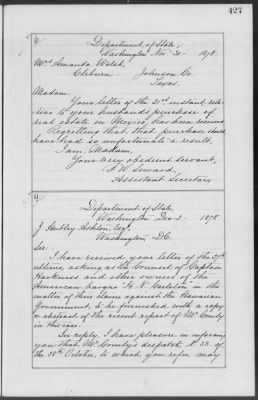 427
Department of State,
Washington Nov. 30 - 1878.
Mrs. Amanda Walsh,
Cleburn Johnson Co.
Texas.
Madam:
Your letter of the 21st instant, rela-
tive to your husband's purchase of
real estate in Mexico, has been received.
Regretting that that purchase should
have had so unfortunate a result,
I am, Madam,
Your very obedient servant,
F. W. Seward,
Assistant Secretary
Department of State,
Washington Dec 2 - 1878
J. Hubley Ashton, Esq.,
Washington, D.C.
Sir:
I have received your letter of the 29th
ultimo, asking as the Counsel of Captain
Harkness and other owners of the
American barque "H. N. Carleton" in the
matter of their claim against the Hawaiian
Government, to be furnished with a copy
or abstract of the recent report of Mr. Comly
in this case.
In reply, I have pleasure in informing
you that Mr. Comly's despatch No. 38 of
the 28th October, to which you refer, may